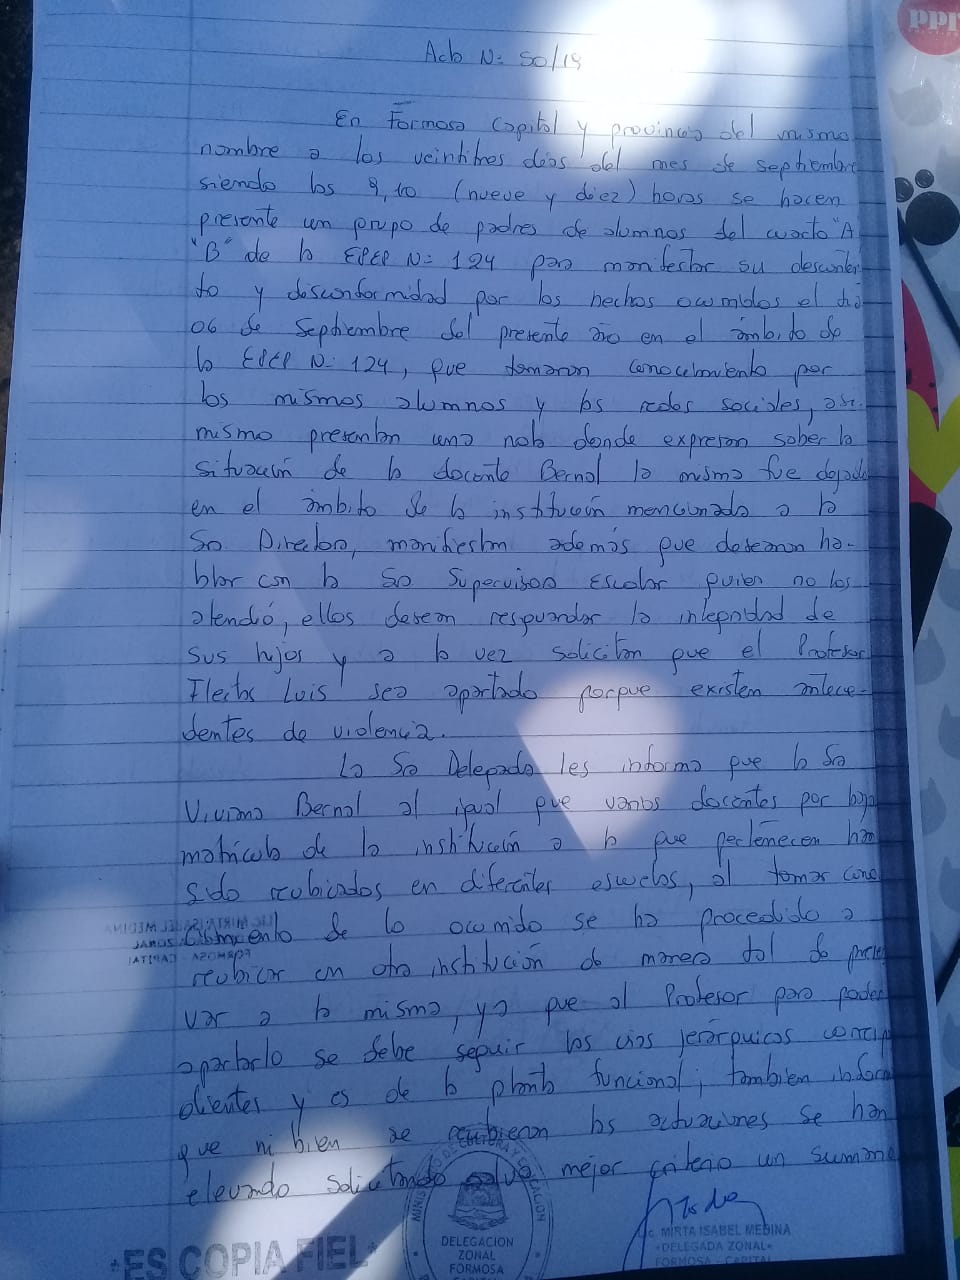 Acta N= 50/19
En Formosa Capital y provincia del mismo
nombre a los veintitres días del mes de septiembre
siendo las 9,10 (nueve y diez) horas se hacen
presente un grupo de padres de alumnos del cuarto "A
"B" de la EPEP N= 124 para manifestar su desconten
to y desconformidad por los hechos ocurridos el día
06 de Septiembre del presente año en el ámbito de
la EPEP N= 124, que tomaron conocimiento por
los mismos alumnos y las redes sociales, asi-
mismo presentan una nota donde expresan saber la
situación de la docente Bernal la misma fue dejada
en el ámbito de la institución mencionada a la
Sra Directora, manifiestan además que desearon ha-
blar con la Sra Supervisora Escolar quien no los
atendió, ellos desean resguardar la integridad de
sus hijos y a la vez solicitan que el Profesor
Fleitas Luis sea apartado porque existen antece-
dentes de violencia.
La Sra Delegada les informa que la Sra
Viviana Bernal al igual que varios docentes por baja
matrícula de la institución a la que pertenecen han
sido reubicados en diferentes escuelas, al tomar cono
cimiento de lo ocurrido se ha procedido a
reubicar en otra institución de manera tal de preser
var a la misma, ya que al Profesor para poder
apartarlo se debe seguir las vías jerárquicas corres
dientes y es de la planta funcional, tambien inform
que ni bien se recibieron las actuaciones se han
elevado solicitando salvo mejor criterio un sumario
LIC. MIRTA ISABEL MEDINA
ZONAL
FORMOSA CAPITAL
*ES COPIA FIEL*
MINISTERIO DE CULTURA Y EDUCACION
DELEGACION
ZONAL
FORMOSA
MIRTA ISABEL MEDINA
*DELEGADA ZONAL*
FORMOSA - CAPITAL
ppr